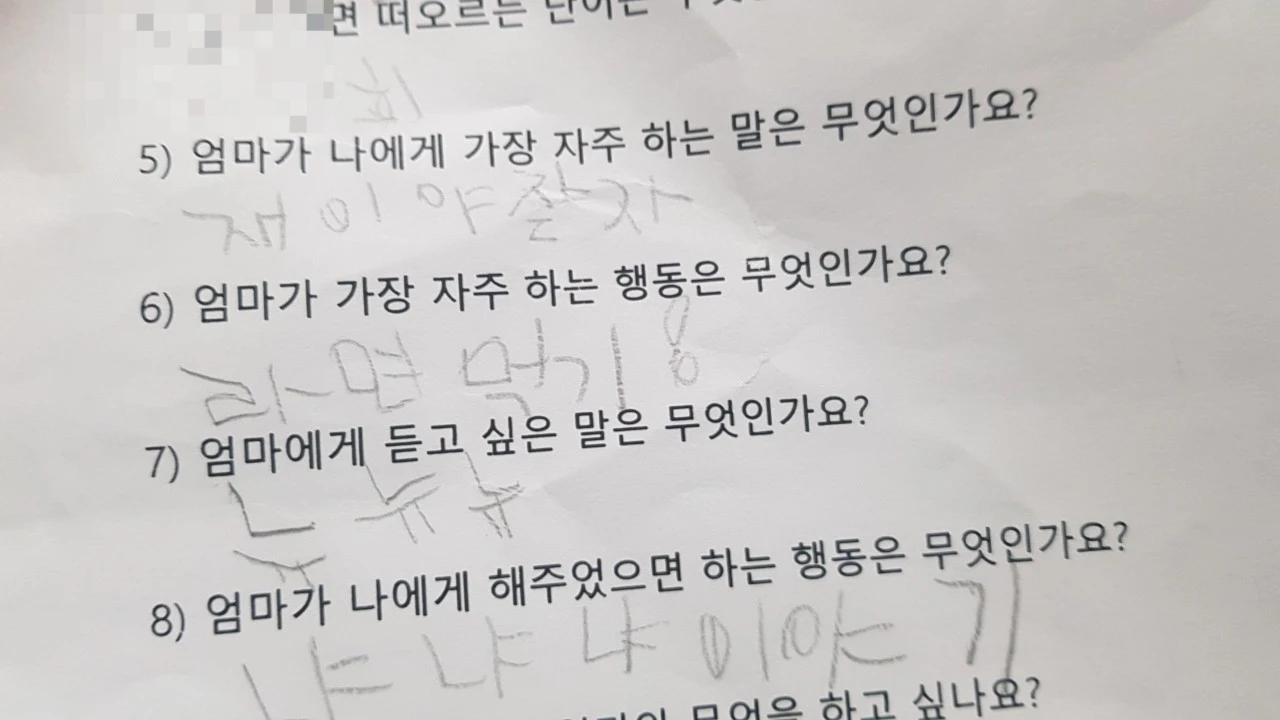 면 떠오르는 단어는
회
5) 엄마가 나에게 가장 자주 하는 말은 무엇인가요?
재이야잘자
6) 엄마가 가장 자주 하는 행동은 무엇인가요?
라면먹기
7) 엄마에게 듣고 싶은 말은 무엇인가요?
뉴뉴뉴
8) 엄마가 나에게 해주었으면 하는 행동은 무엇인가요?
냐냐냐이야기
무엇을 하고 싶나요?